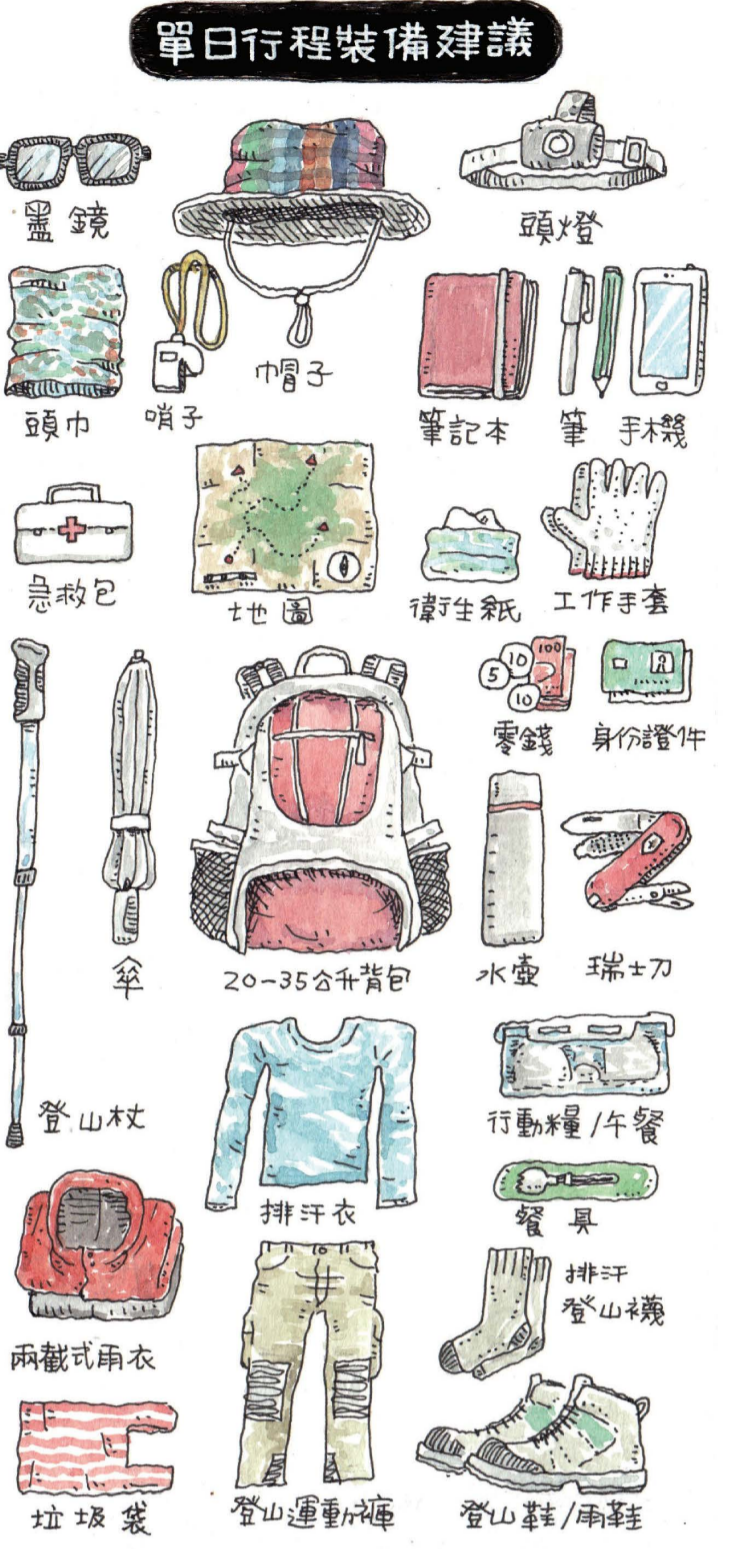 單日行程裝備建議
墨鏡
頭燈
帽子
頭巾
哨子
筆記本
筆
手機
急救包
地圖
衛生紙
工作手套
5
10
10
100
零錢
身份證件
傘
20-35公升背包
水壺
瑞士刀
登山杖
排汗衣
行動糧/午餐
餐具
兩截式雨衣
排汗
登山襪
垃圾袋
登山運動褲
登山鞋/雨鞋